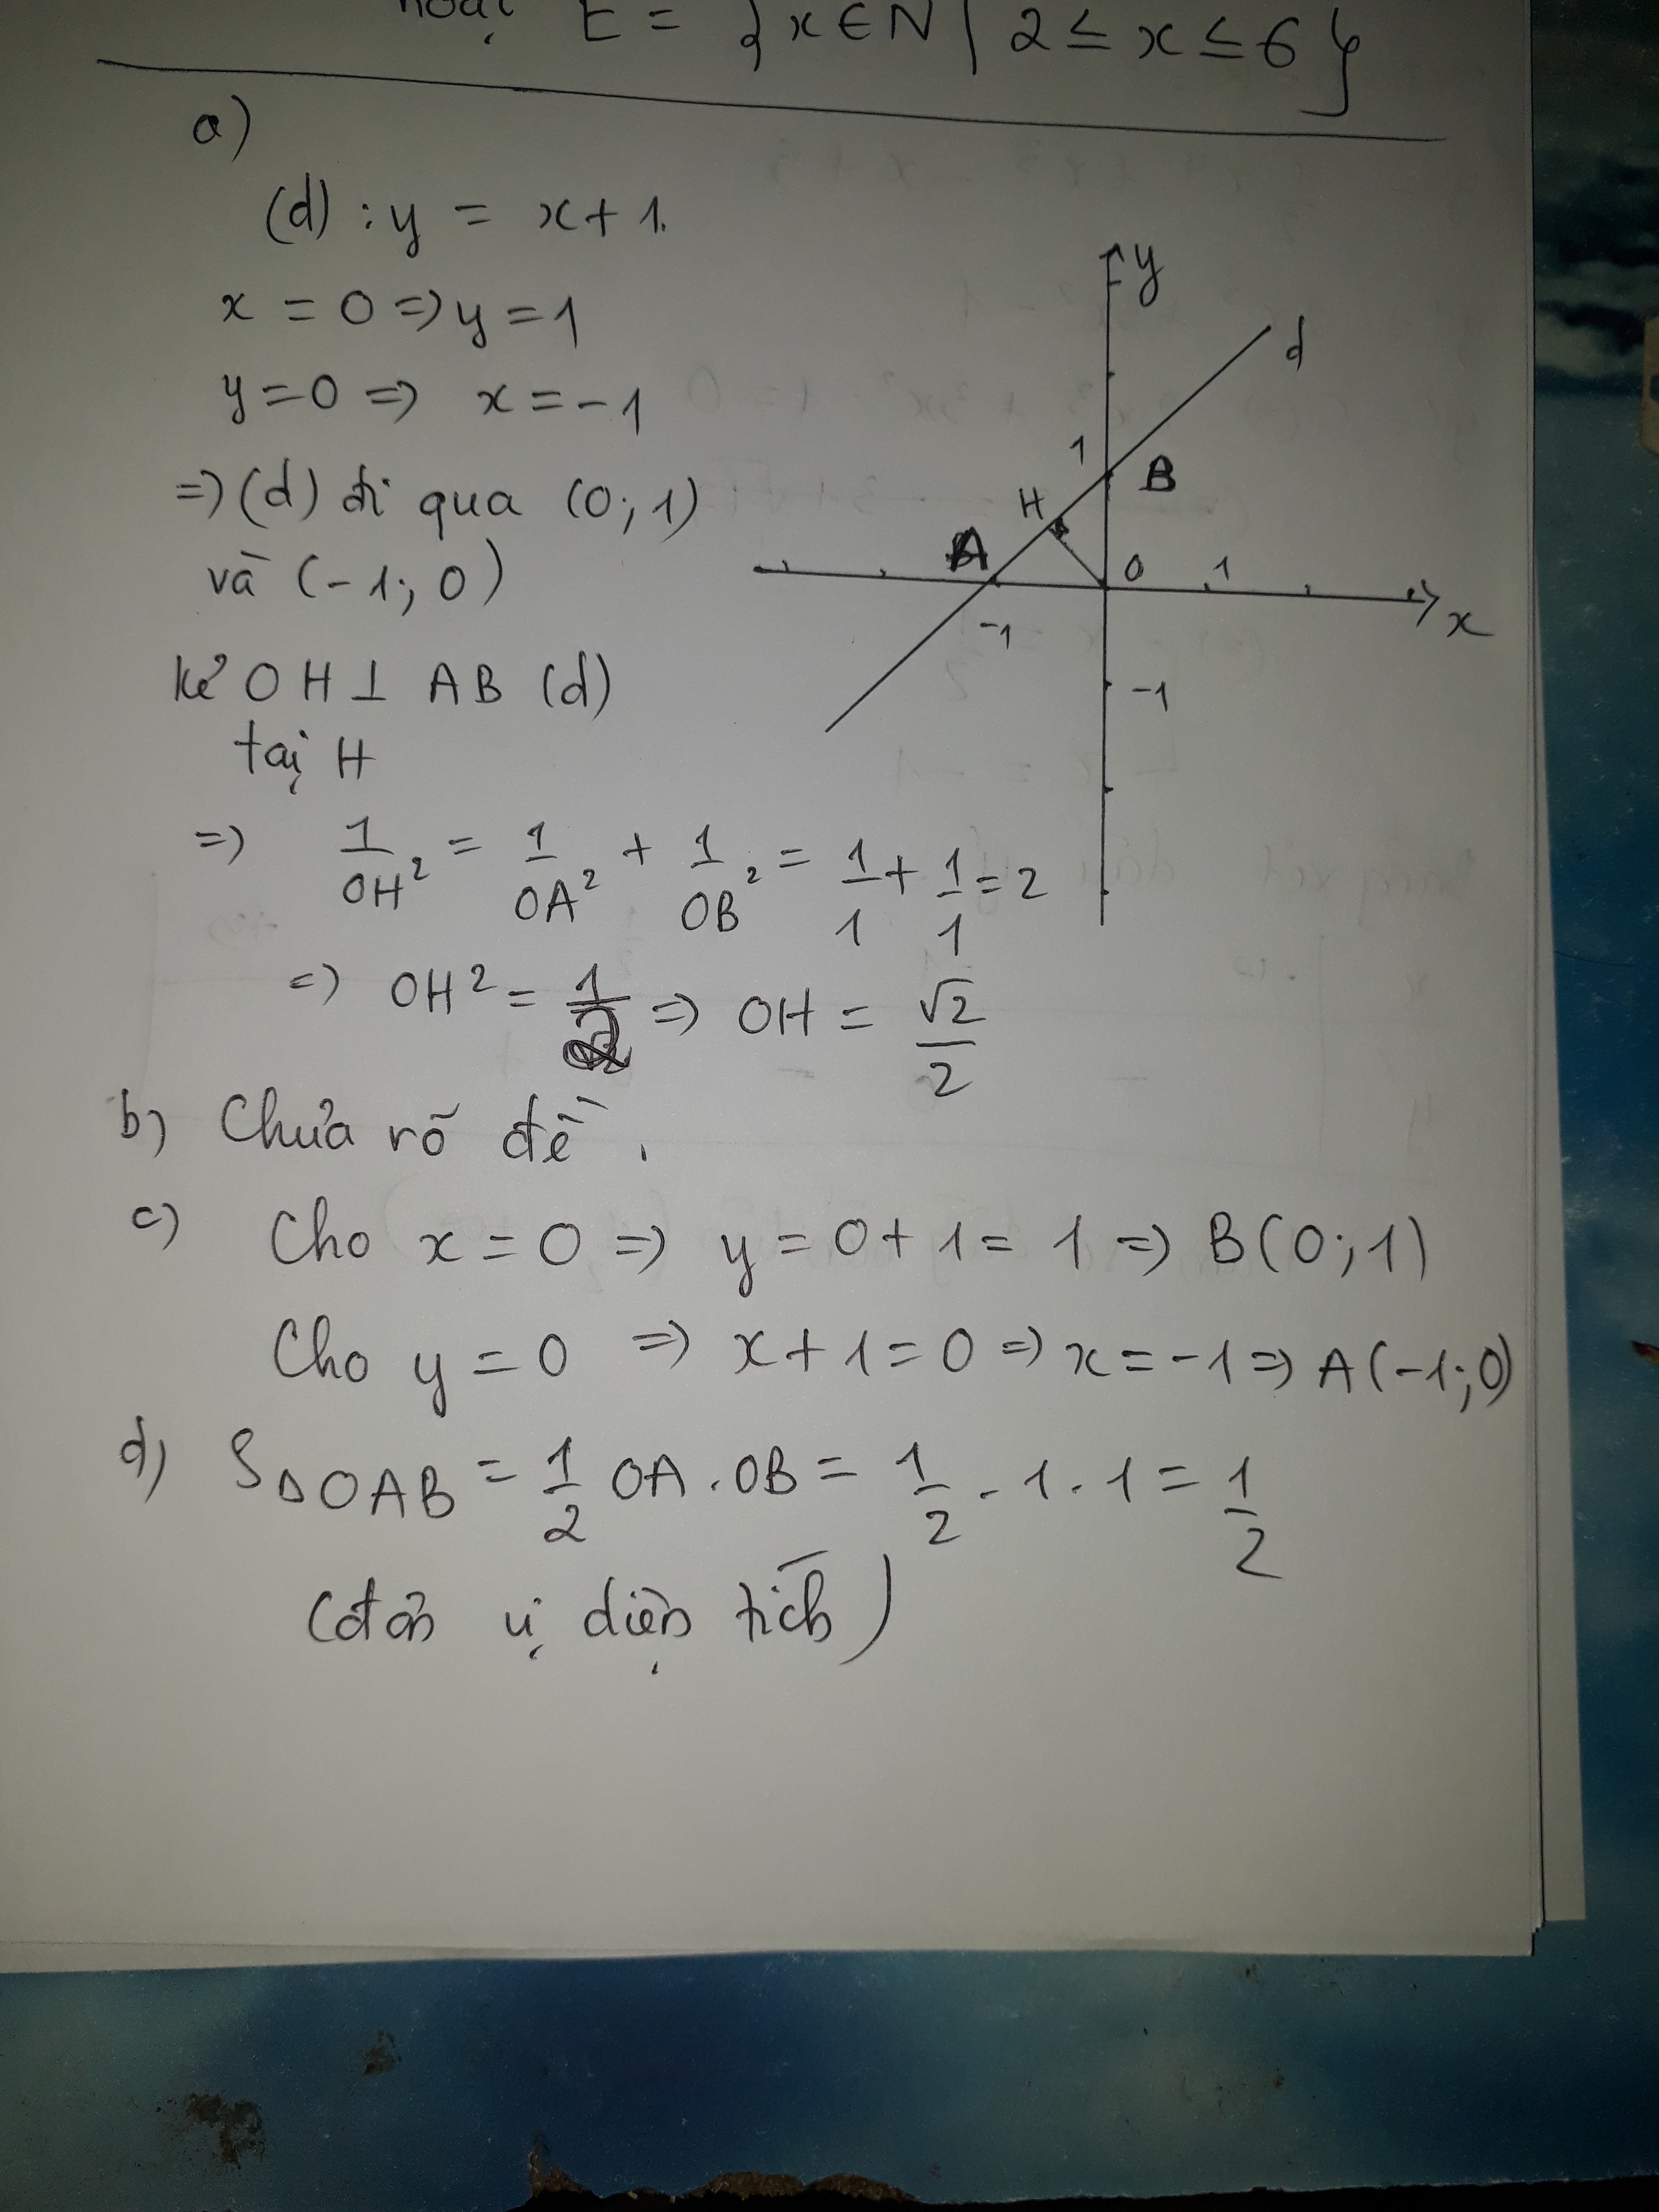 hoặc E = {x ∈ N | 2 ≤ x ≤ 6}
a)
(d) : y = x + 1.
x = 0 => y = 1
y = 0 => x = -1
=> (d) đi qua (0; 1)
và (-1; 0)
kẻ OH ⊥ AB (d)
tại H
y
d
1
B
H
A
0
1
-1
x
-1
=> 1/OH² = 1/OA² + 1/OB² = 1/1 + 1/1 = 2
=> OH² = 1/2 => OH = √2/2
b) Chưa rõ đề.
c) Cho x = 0 => y = 0 + 1 = 1 => B(0; 1)
Cho y = 0 => x + 1 = 0 => x = -1 => A(-1; 0)
d) SΔOAB = 1/2 OA . OB = 1/2 . 1 . 1 = 1/2
(đơn vị diện tích)